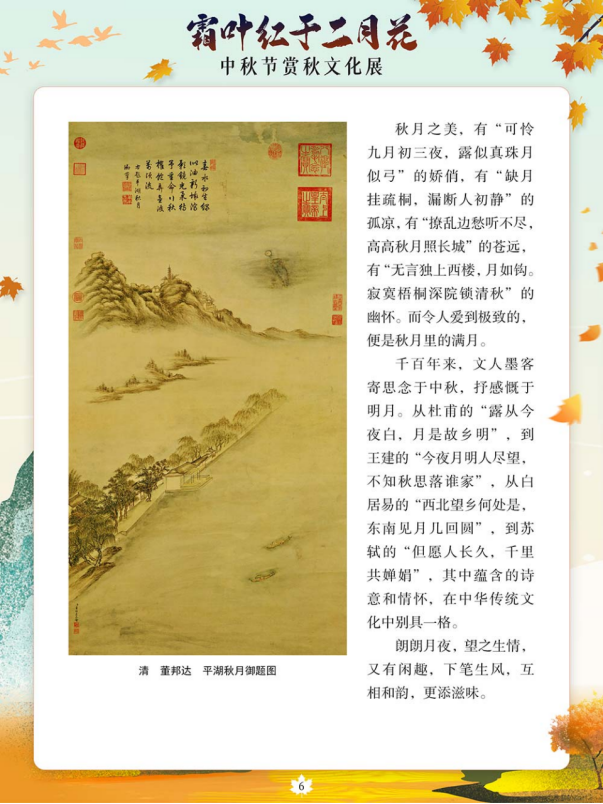 霜叶红于二月花
中秋节赏秋文化展
秋月之美，有“可怜
九月初三夜，露似真珠月
似弓”的娇俏，有“缺月
挂疏桐，漏断人初静”的
孤凉，有“撩乱边愁听不尽，
高高秋月照长城”的苍远，
有“无言独上西楼，月如钩。
寂寞梧桐深院锁清秋”的
幽怀。而令人爱到极致的，
便是秋月里的满月。
千百年来，文人墨客
寄思念于中秋，抒感慨于
明月。从杜甫的“露从今
夜白，月是故乡明”，到
王建的“今夜月明人尽望，
不知秋思落谁家”，从白
居易的“西北望乡何处是，
东南见月几回圆”，到苏
轼的“但愿人长久，千里
共婵娟”，其中蕴含的诗
意和情怀，在中华传统文
化中别具一格。
朗朗月夜，望之生情，
又有闲趣，下笔生风，互
相和韵，更添滋味。
清 董邦达 平湖秋月御题图
6